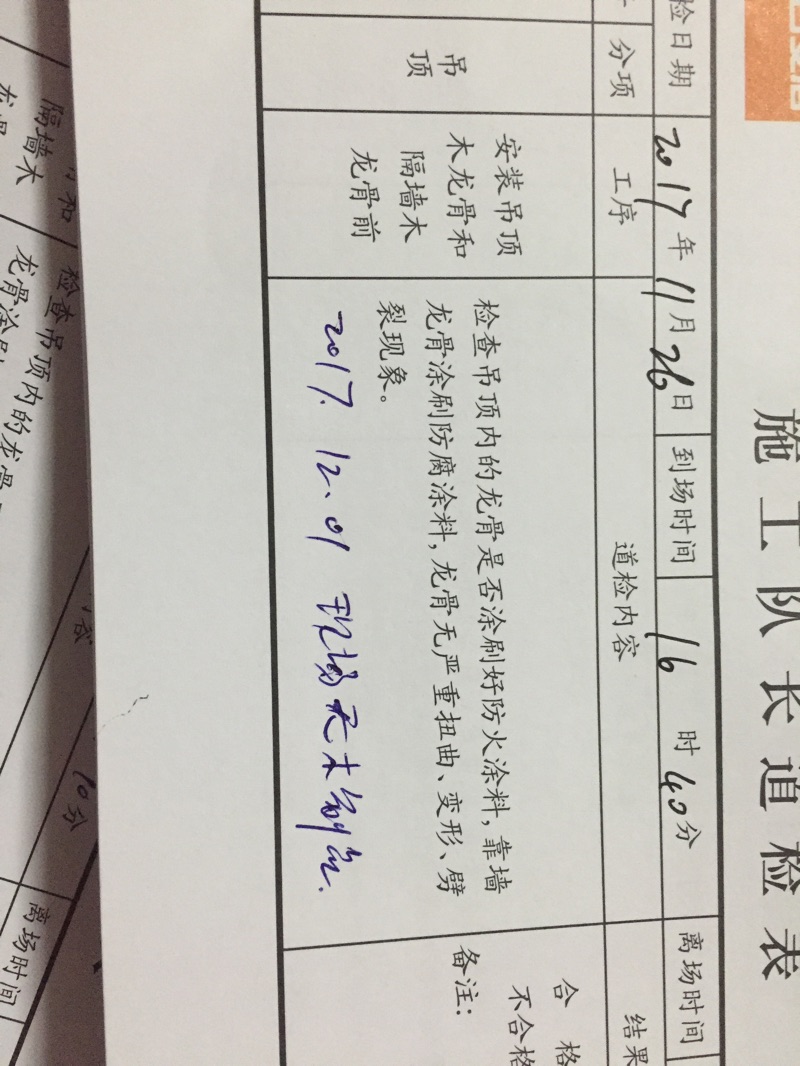 施工队长道检表
检日期 2017年11月26日 到场时间 16时40分 离场时间
分项 工序 道检内容 结果
吊
顶
安装吊顶
木龙骨和
隔墙木
龙骨前
检查吊顶内的龙骨是否涂刷好防火涂料，靠墙
龙骨涂刷防腐涂料，龙骨无严重扭曲、变形、劈
裂现象。
2017. 12. 01 现场无木制作.
合格
不合格
备注：
隔墙木
检查吊顶内的龙骨
龙骨涂刷
10分
离场时间